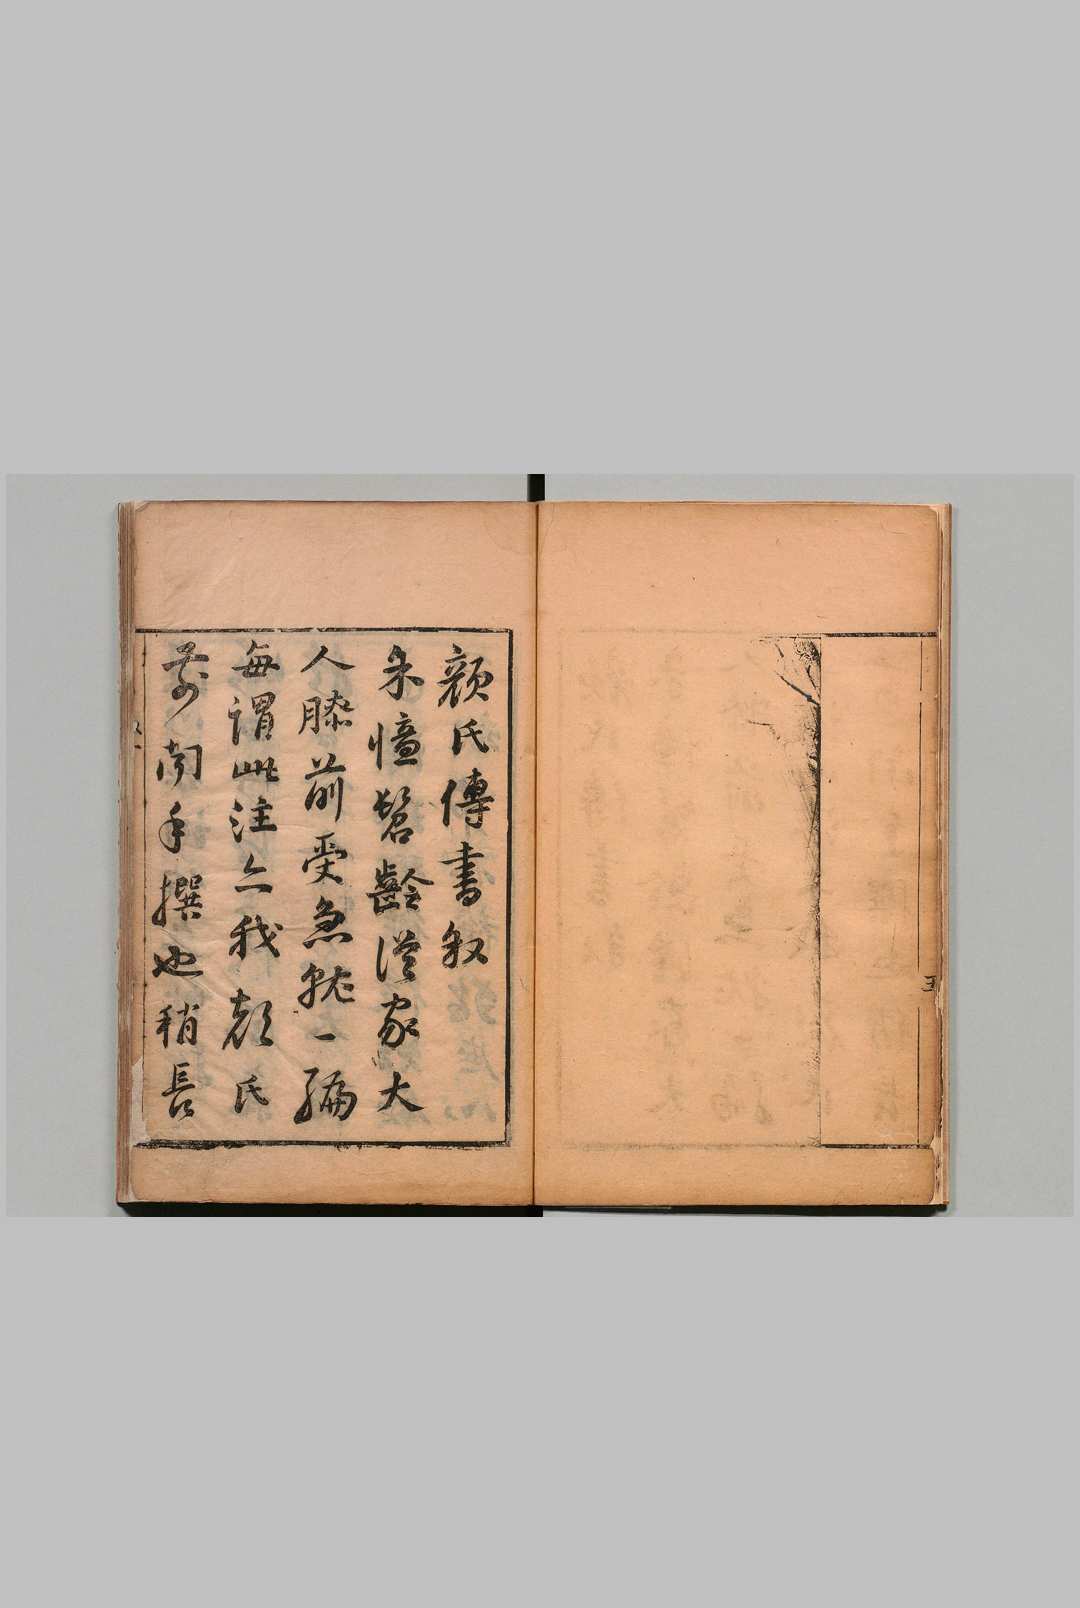 顏氏傳書叙
余憶髫齡從家大
人膝前受急就一編
每謂此注亦我顏氏
手撰也稍長